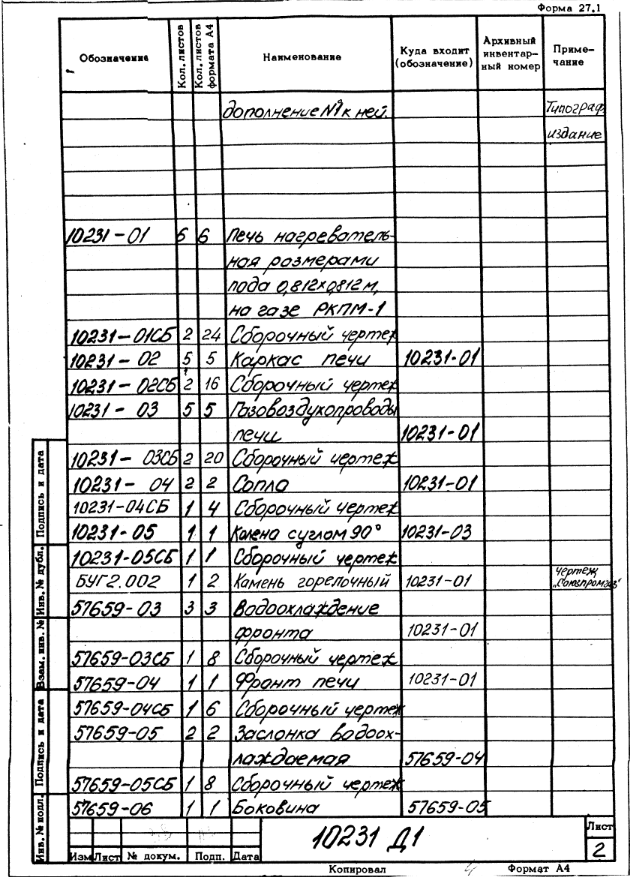 Форма 27.1
Обозначение Кол. листов Кол. листов формата А4 Наименование Куда входит (обозначение) Архивный инвентарный номер Примечание
дополнение №1 к ней. Типограф.
издание
10231-01 6 Печь нагреватель-
ная размерами
пода 0,812х0,812м,
на газе РКПМ-1
10231-01СБ 2 24 Сборочный чертеж
10231-02 5 5 Каркас печи 10231-01
10231-02СБ 2 16 Сборочный чертеж
10231-03 5 5 Газовоздухопроводы
печи 10231-01
10231-03СБ 2 20 Сборочный чертеж
10231-04 2 2 Сопла 10231-01
10231-04СБ 1 4 Сборочный чертеж
10231-05 1 1 Колена с углом 90° 10231-03
10231-05СБ 1 1 Сборочный чертеж
БУГ2.002 1 2 Камень горелочный 10231-01 чертеж
"Союзпромгаз"
57659-03 3 3 Водоохлаждение
фронта 10231-01
57659-03СБ 1 8 Сборочный чертеж
57659-04 1 1 Фронт печи 10231-01
57659-04СБ 1 6 Сборочный чертеж
57659-05 2 2 Заслонка водоох-
лаждаемая 57659-04
57659-05СБ 1 8 Сборочный чертеж
57659-06 1 1 Боковина 57659-05
Инв. № подл. Подпись и дата Взам. инв. № Инв. № дубл. Подпись и дата
10231 Д1
Лист
2
Изм Лист № докум. Подп. Дата
Копировал Формат А4